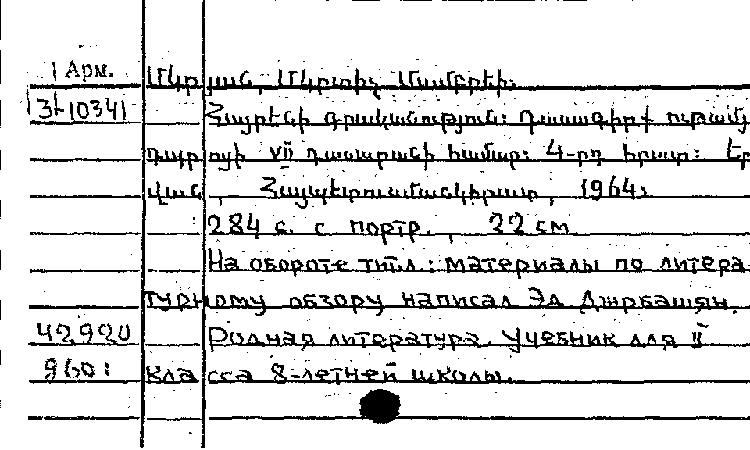 Арм.
Մկրյան, Մկրտիչ Մամբրեի։
Э1-10341
Հայրենի գրականություն։ Դասագիրք ութամյա
դպրոցի VII դասարանի համար։ 4-րդ հրատ։ Եր
վան, Հայպետուսմանկհրատ, 1964։
284 с. с портр., 22 см
На обороте тит.л.: материалы по литера
турному обзору написал Эд Джрбашян.
42920
Родная литература. Учебник для
960:
класса 8-летней школы.